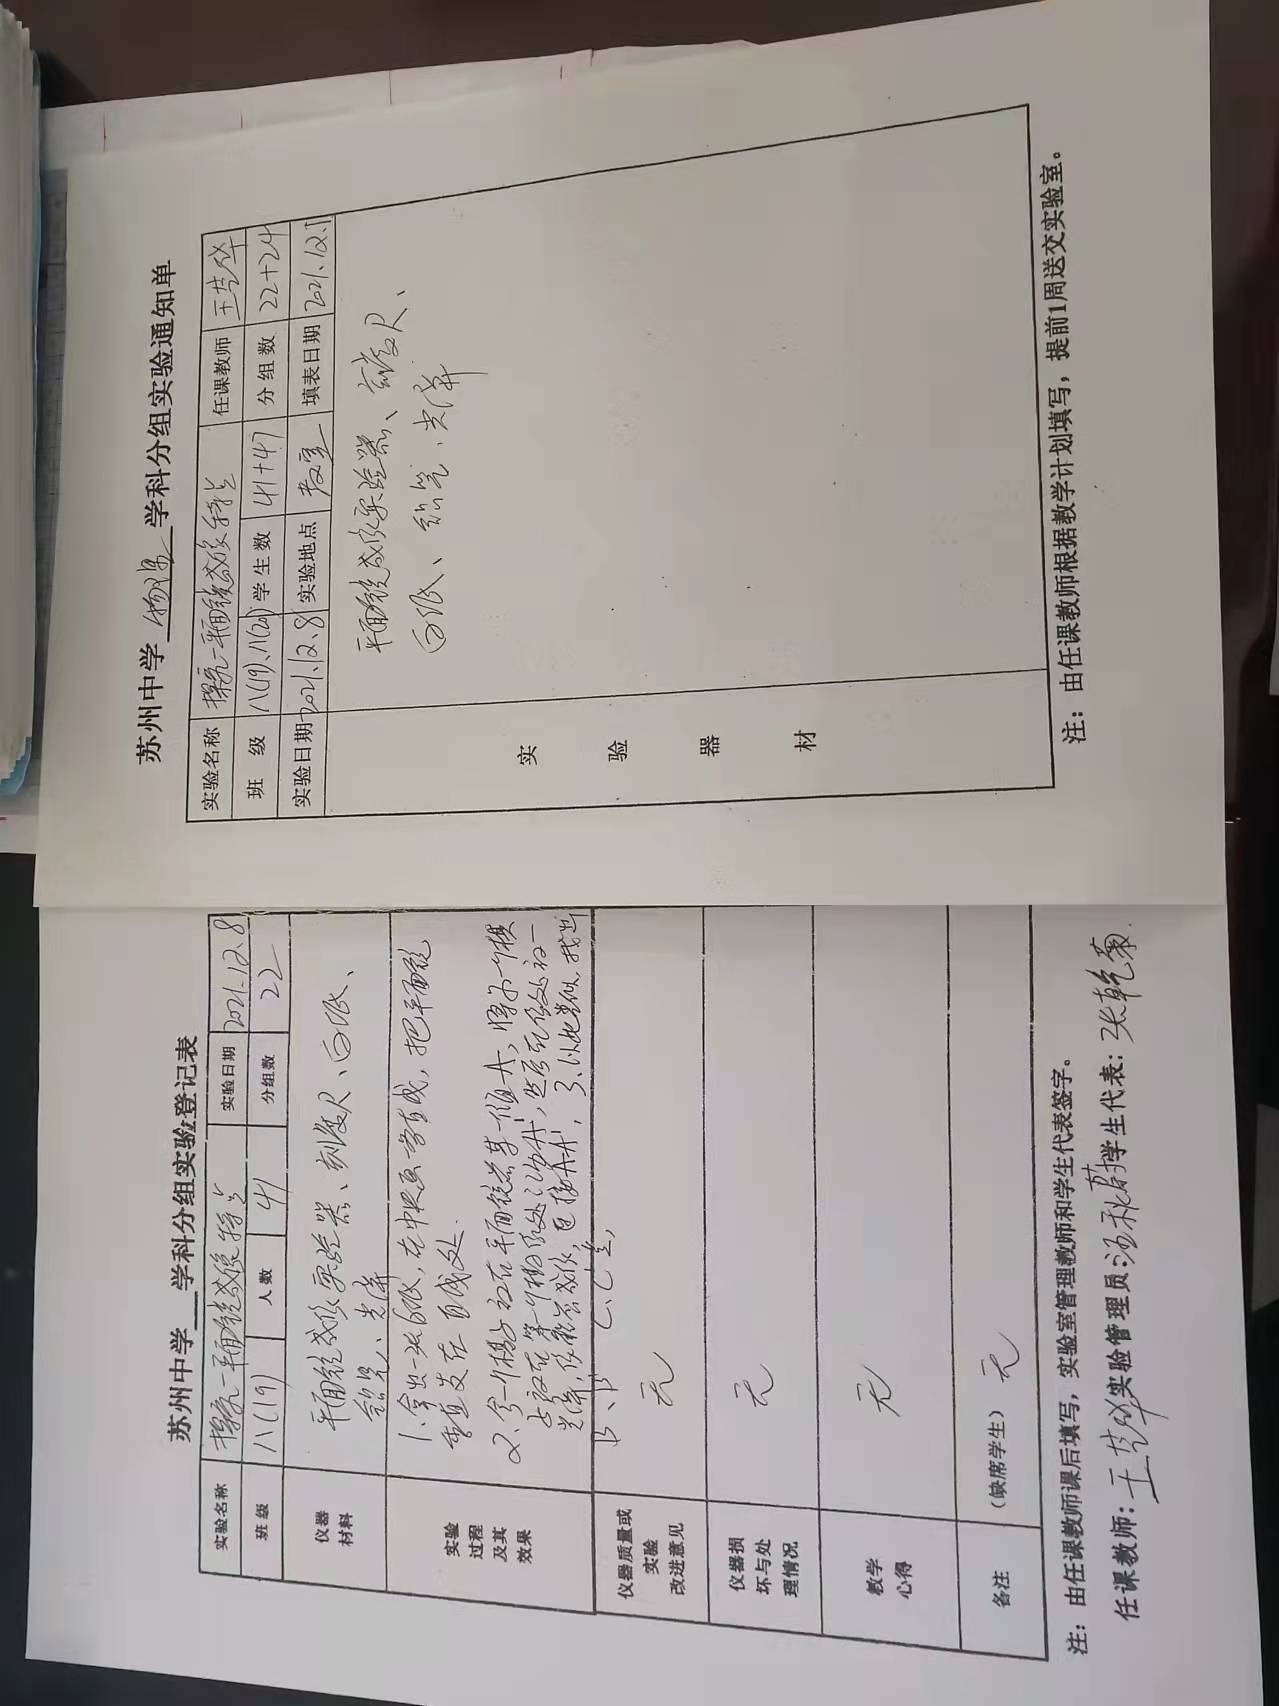 苏州中学 物理 学科分组实验通知单
实验名称 探究—平面镜成像特点 任课教师 王梦华
班 级 八(19)、八(20) 学生数 41+47 分组数 22+24
实验日期 2021.12.8 实验地点 教室 填表日期 2021.12.1
实验器材
平面镜成像实验器、刻度尺、
白纸、铅笔、光屏
注：由任课教师根据教学计划填写，提前1周送交实验室。
苏州中学 学科分组实验登记表
实验名称 探究—平面镜成像特点 实验日期 2021.12.8
班级 八(19) 人数 41 分组数 22
仪器材料
平面镜成像实验器、刻度尺、白纸、
铅笔、光屏
实验过程及其效果
1.拿出一张白纸，在中央画一直线，把平面镜
垂直放在直线处.
2、令一个棋子放在平面镜前某一位A，将另一个棋
子放在第一个棋子像处记为A'，然后在像处放一
光屏，像能否成像，连接A-A'，3、以此类似，找出
B、B' C、C'点,
仪器质量或实验改进意见 无
仪器损坏与处理情况 无
教学心得 无
备注 （缺席学生） 无
注：由任课教师课后填写，实验室管理教师和学生代表签字。
任课教师：王梦华 实验管理员：汤秋蔚 学生代表：张乾菊